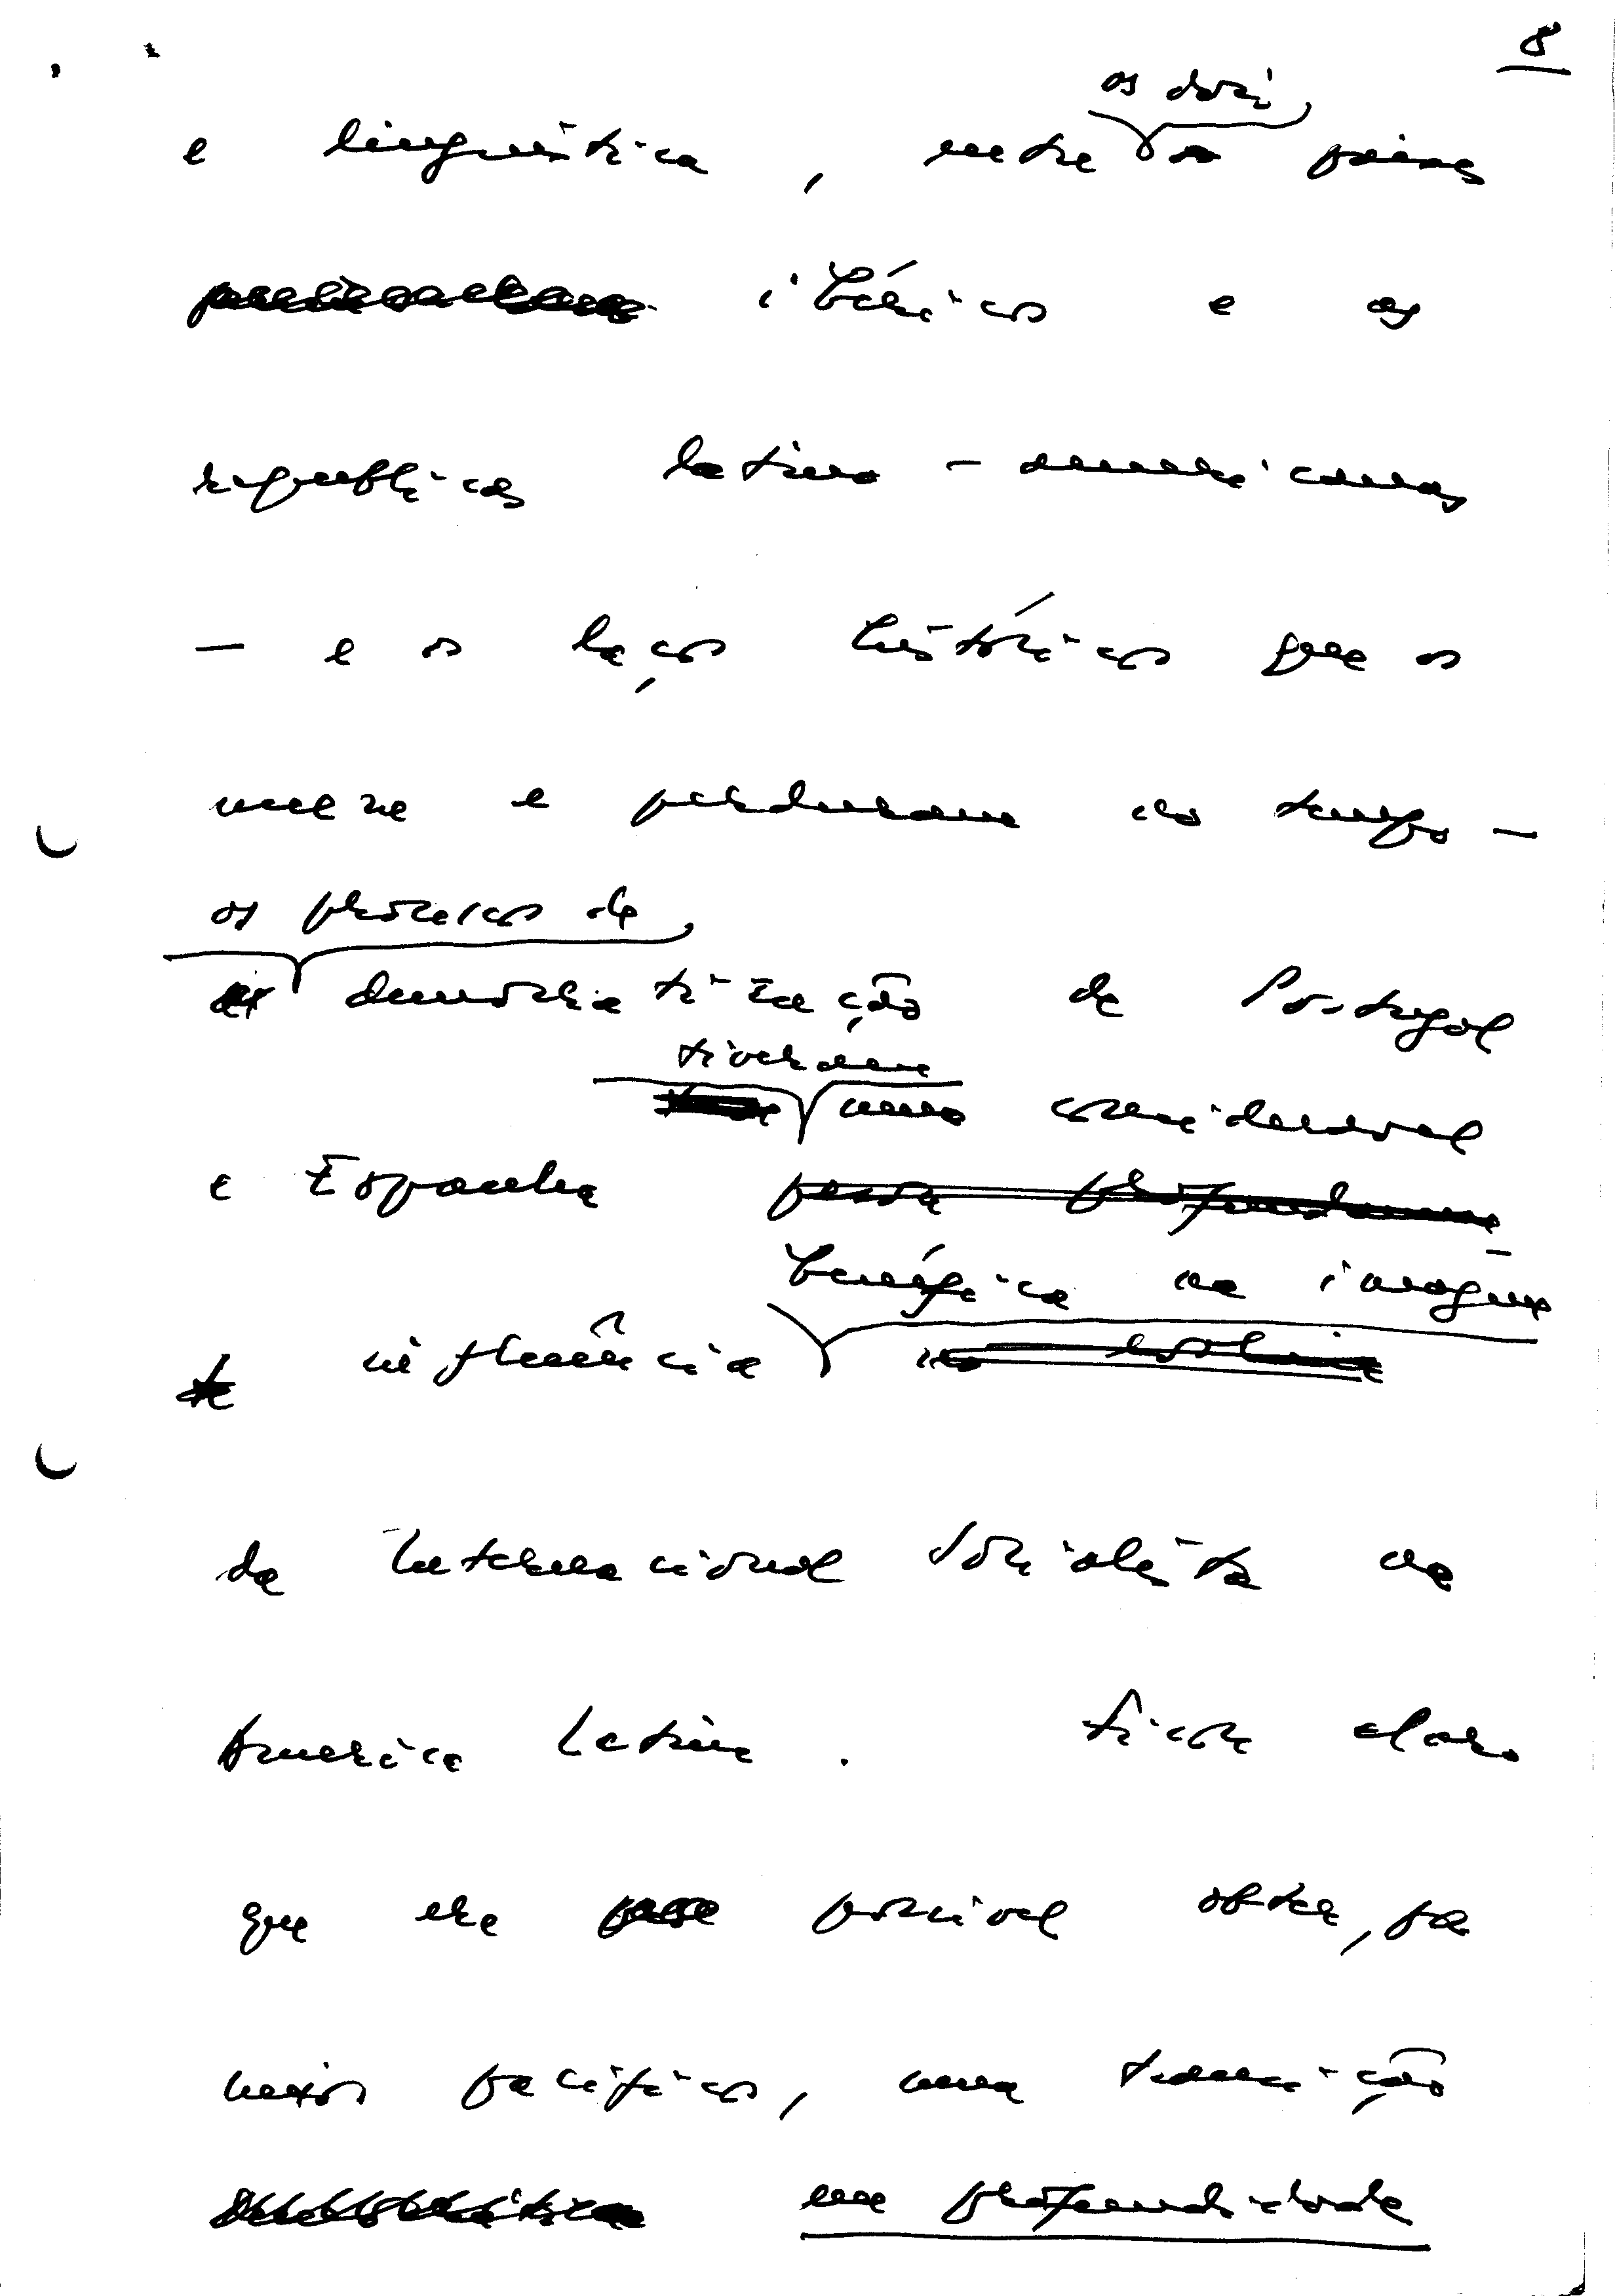 8
os dois
e linguística, entre os países
ibéricos e as
repúblicas latino-americanas
— e os laços históricos que os
une e perduram no tempo —
os processos de
democratização de Portugal
tiveram
uma considerável
e Espanha
benéfica na imagem
influência
da Internacional Socialista na
América Latina. Ficou claro
que era possível obter, por
meios pacíficos, uma transição
em profundidade